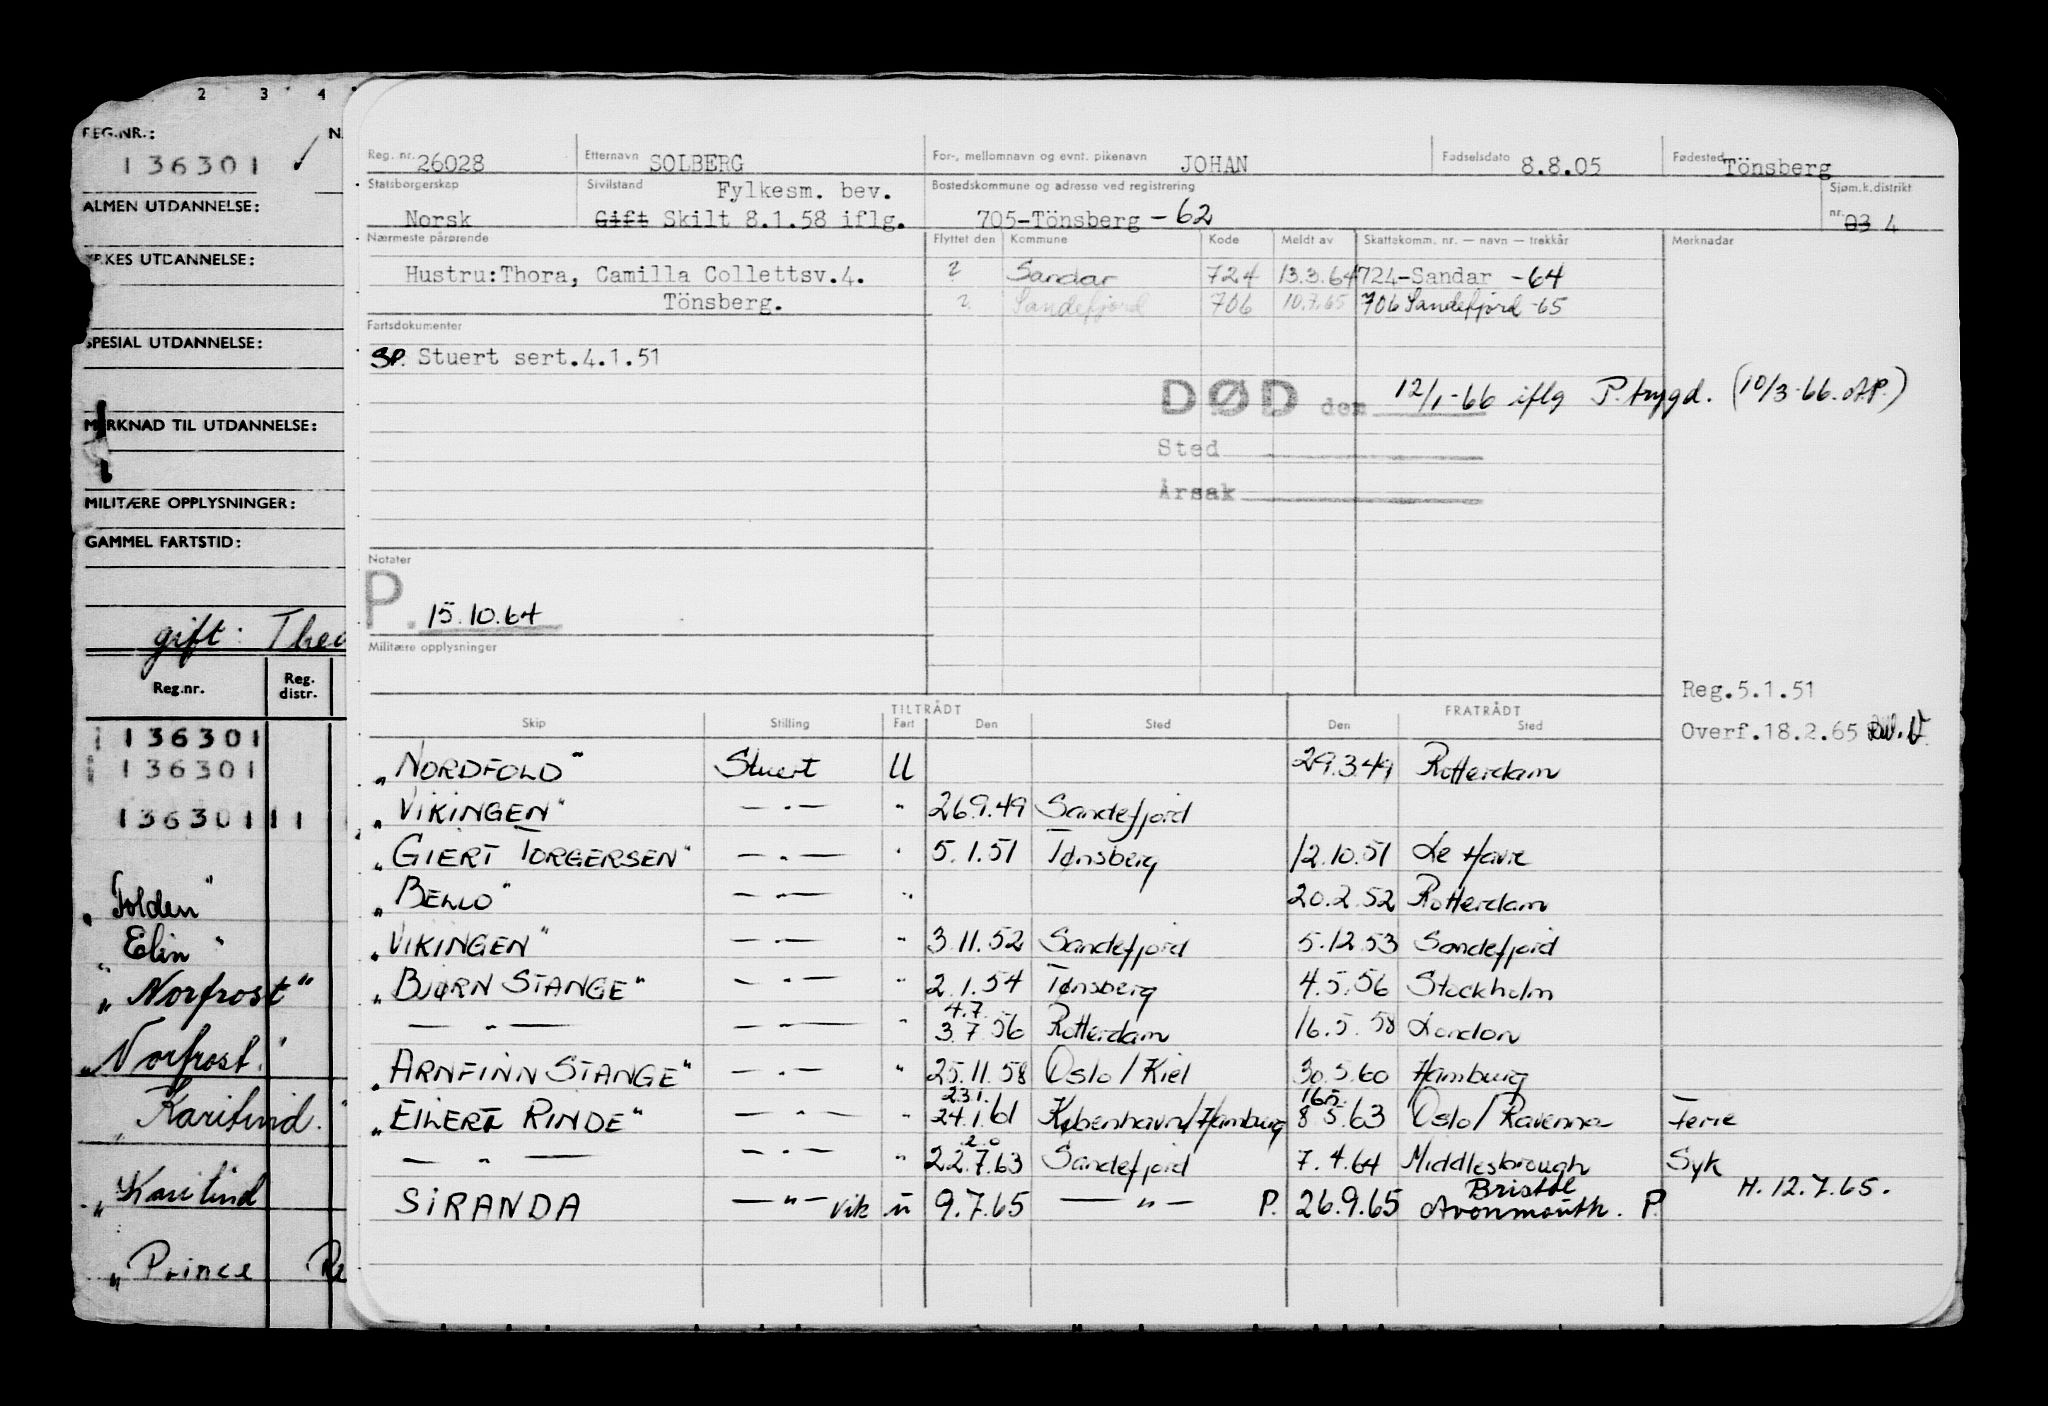 2 3 4
REG.NR.:
136301 ✓
ALMEN UTDANNELSE:
YRKES UTDANNELSE:
SPESIAL UTDANNELSE:
MERKNAD TIL UTDANNELSE:
MILITÆRE OPPLYSNINGER:
GAMMEL FARTSTID:
gift:
Reg.nr. Reg. distr.
136301
136301
136301 11
"Folden"
"Elin"
"Norfrost"
"Norfrost."
"Karitind."
"Karitind
"Prince
Reg. nr. 26028 Etternavn SOLBERG For-, mellomnavn og evnt. pikenavn JOHAN Fødselsdato 8.8.05 Fødested Tönsberg
Statsborgerskap Sivilstand Fylkesm. bev. Bostedskommune og adresse ved registrering Sjøm.k.distrikt
Norsk Gift Skilt 8.1.58 iflg. 705-Tönsberg -62 nr. 03 4
Nærmeste pårørende Flyttet den Kommune Kode Meldt av Skattekomm. nr. — navn — trekkår Merknader
Hustru:Thora, Camilla Collettsv.4. ? Sandar 724 13.3.64 724-Sandar -64
Tönsberg. ? Sandefjord 706 10.7.65 706 Sandefjord -65
Fartsdokumenter
SP. Stuert sert.4.1.51
DØD den 12/1-66 iflg P.trygd. (10/3-66. AP.)
Sted
Årsak
Notater
P. 15.10.64
Militære opplysninger
Reg.5.1.51
Overf.18.2.65
TILTRÅDT FRATRÅDT
Skip Stilling Fart Den Sted Den Sted
"NORDFOLD" Stuert U 29.3.49 Rotterdam
"VIKINGEN" — . — " 26.9.49 Sandefjord
"GIERT TORGERSEN" — . — " 5.1.51 Tønsberg 12.10.51 Le Havre
"BELLO" — . — " 20.2.52 Rotterdam
"VIKINGEN" — . — " 3.11.52 Sandefjord 5.12.53 Sandefjord
"BJØRN STANGE" — . — " 2.1.54 Tønsberg 4.5.56 Stockholm
4.7.
— " — — . — " 3.7.56 Rotterdam 16.5.58 London
"ARNFINN STANGE" — . — " 25.11.58 Oslo/Kiel 30.5.60 Hamburg
23.1. 16.5.
"EILERT RINDE" — . — " 24.1.61 København/Hamburg 8.5.63 Oslo/Ravenna Ferie
20
— " — — . — " 22.7.63 Sandefjord 7.4.64 Middlesbrough Syk
Bristol H. 12.7.65.
SIRANDA — " — vik u 9.7.65 — " — P. 26.9.65 Avonmouth. P.